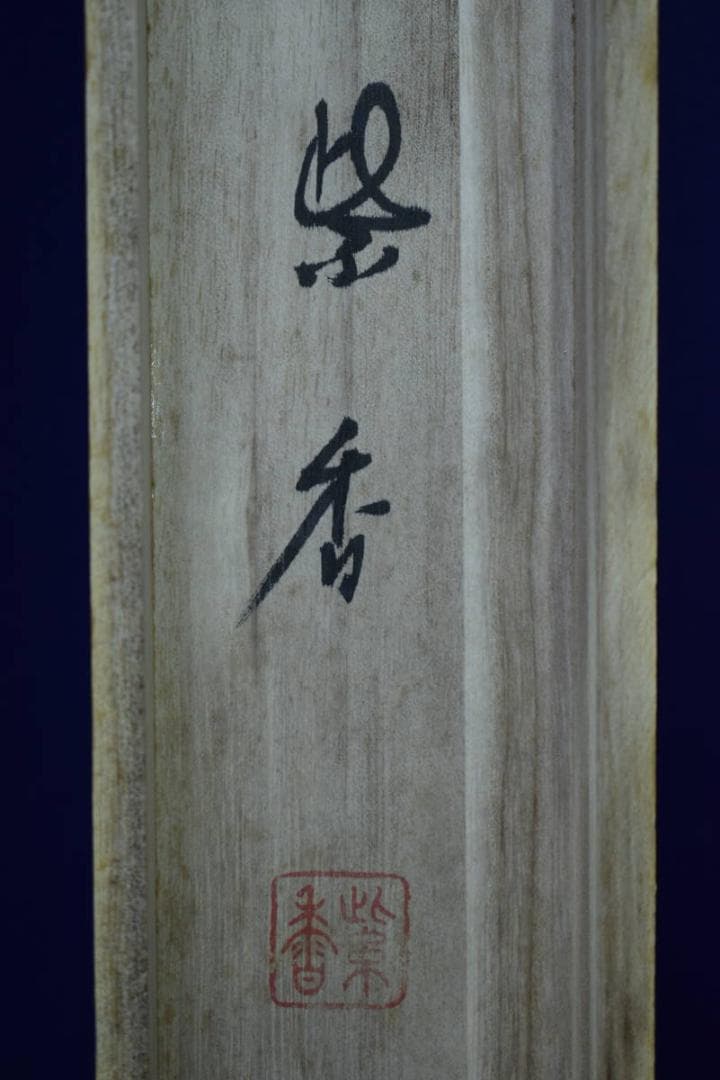 紫香
紫香